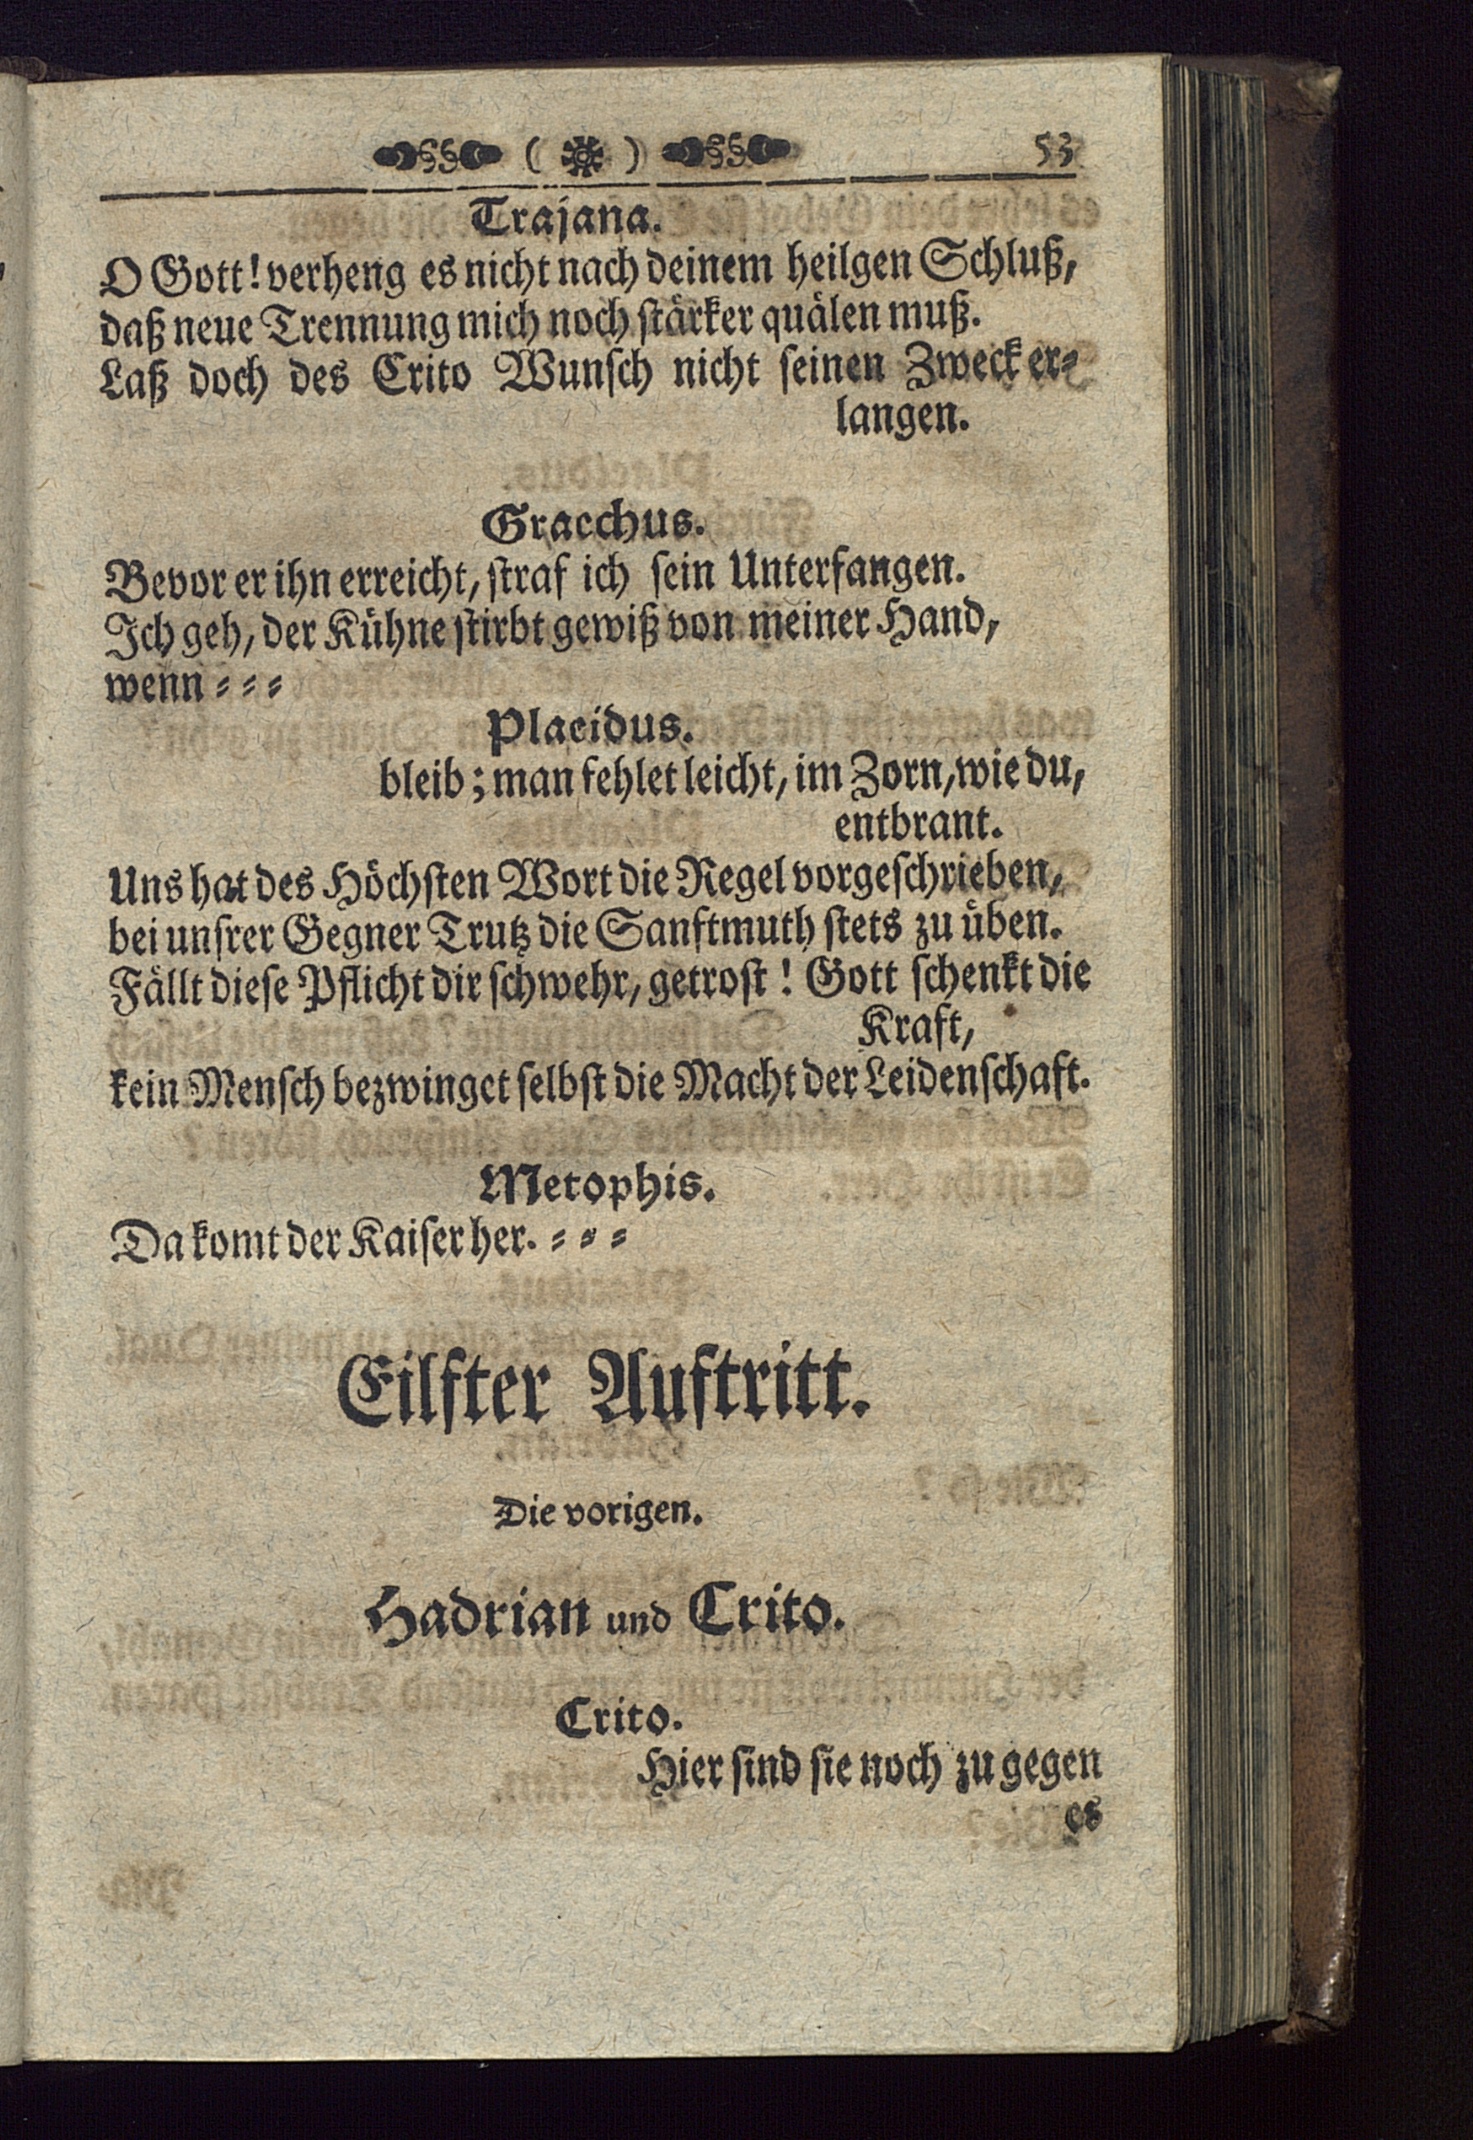 ( ) 53
Trajana.
O Gott! verheng es nicht nach deinem heilgen Schluß,
daß neue Trennung mich noch stärker quälen muß.
Laß doch des Crito Wunsch nicht seinen Zweck er-
langen.
Gracchus.
Bevor er ihn erreicht, straf ich sein Unterfangen.
Ich geh, der Kühne stirbt gewiß von meiner Hand,
wenn - - -
Placidus.
bleib; man fehlet leicht, im Zorn, wie du,
entbrant.
Uns hat des Höchsten Wort die Regel vorgeschrieben,
bei unsrer Gegner Trutz die Sanftmuth stets zu üben.
Fällt diese Pflicht dir schwehr, getrost! Gott schenkt die
Kraft,
kein Mensch bezwinget selbst die Macht der Leidenschaft.
Metophis.
Da komt der Kaiser her. - - -
Eilfter Auftritt.
Die vorigen.
Hadrian und Crito.
Crito.
Hier sind sie noch zu gegen
es